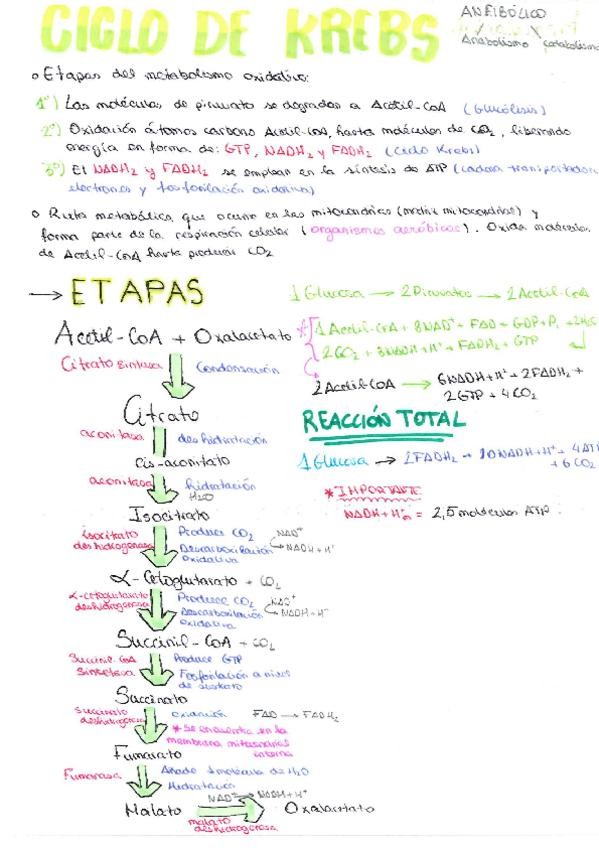 CICLO DE KREBS
ANFIBÓLICO
Anabolismo catabolismo
o Etapas del metabolismo oxidativo:
1º) Las moléculas de piruvato se degradan a Acetil-CoA (Glucólisis)
2º) Oxidación átomos carbono Acetil-CoA, hasta moléculas de CO₂, liberando
energía en forma de: GTP, NADH₂ y FADH₂ (Ciclo Krebs)
3º) El NADH₂ y FADH₂ se emplean en la síntesis de ATP (cadena transportadora
electrones y fosforilación oxidativa)
o Ruta metabólica que ocurre en las mitocondrias (matriz mitocondrial) y
forma parte de la respiración celular (organismos aeróbicos). Oxida moléculas
de Acetil-CoA hasta producir CO₂
→ ETAPAS
1 Glucosa → 2 Piruvatos → 2 Acetil-CoA
Acetil-CoA + Oxalacetato
* 1 Acetil-CoA + 3NAD⁺ + FAD + GDP + Pi + 2H₂O
2CO₂ + 3NADH+H⁺ + FADH₂ + GTP
Citrato sintasa
Condensación
2 Acetil-CoA → 6NADH+H⁺ + 2FADH₂ +
2GTP + 4CO₂
Citrato
REACCIÓN TOTAL
aconitasa
deshidratación
cis-aconitato
1 Glucosa → 2FADH₂ + 10NADH+H⁺ + 4ATP
+ 6CO₂
aconitasa
hidratación
H₂O
* IMPORTANTE
Isocitrato
NADH+H⁺ = 2,5 moléculas ATP
isocitrato
deshidrogenasa
Produce CO₂
Descarboxilación
oxidativa
NAD⁺
NADH+H⁺
α-Cetoglutarato + CO₂
α-cetoglutarato
deshidrogenasa
Produce CO₂
Descarboxilación
oxidativa
NAD⁺
NADH+H⁺
Succinil-CoA + CO₂
Succinil-CoA
sintetasa
Produce GTP
Fosforilación a nivel
de sustrato
Succinato
succinato
deshidrogenasa
oxidación
FAD → FADH₂
* Se encuentra en la
membrana mitocondrial
interna
Fumarato
Fumarasa
Añade 1 molécula de H₂O
Hidratación
NAD⁺ → NADH+H⁺
Malato
Oxalacetato
malato
deshidrogenasa